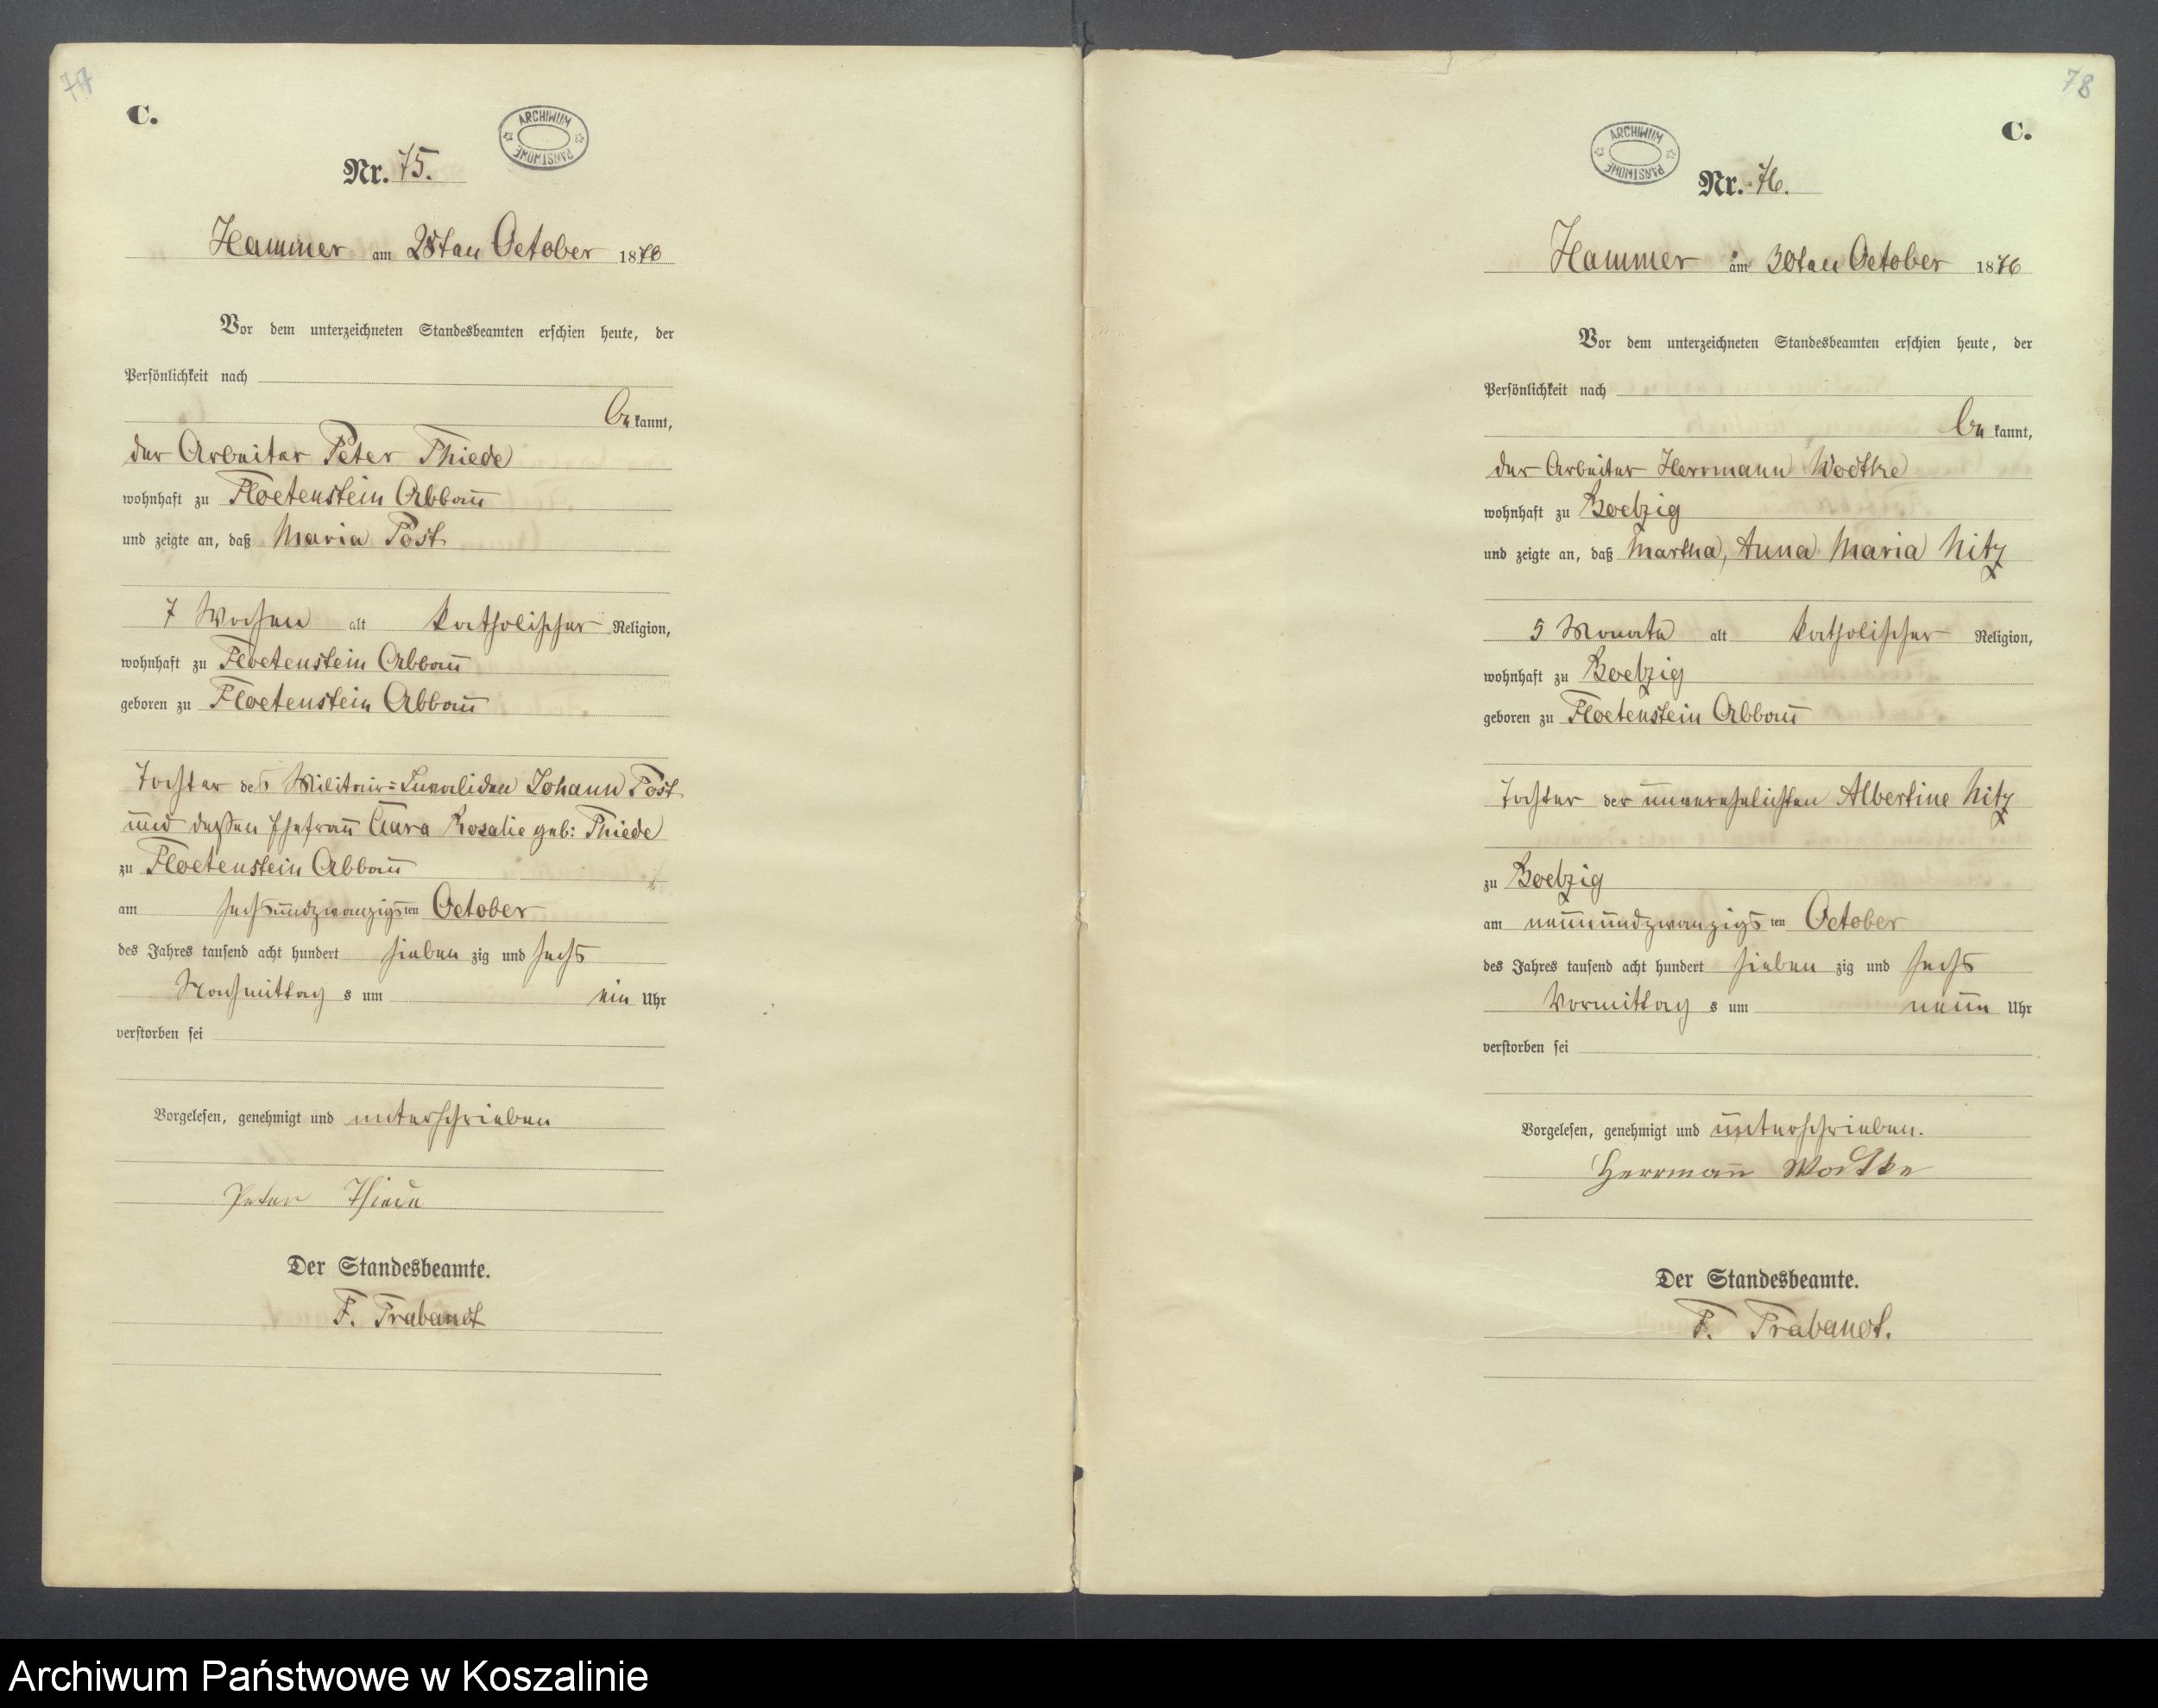 77
C.
ARCHIWUM PAŃSTWOWE
Nr. 75.
Hammer am 28ten October 1876
Vor dem unterzeichneten Standesbeamten erschien heute, der
Persönlichkeit nach
be kannt,
der Arbeiter Peter Thiede
wohnhaft zu Floetenstein Abbau
und zeigte an, daß Maria Post
7 Wochen alt katholischer Religion,
wohnhaft zu Floetenstein Abbau
geboren zu Floetenstein Abbau
Tochter des Militair=Invaliden Johann Post
und deßen Ehefrau Clara Rosalie geb: Thiede
zu Floetenstein Abbau
am sechsundzwanzigsten October
des Jahres tausend acht hundert sieben zig und sechs
Nachmittag s um ein Uhr
verstorben sei
Vorgelesen, genehmigt und unterschrieben
Peter Thiede
Der Standesbeamte.
F. Trabandt
78
C.
ARCHIWUM PAŃSTWOWE
Nr. 76.
Hammer am 30ten October 1876
Vor dem unterzeichneten Standesbeamten erschien heute, der
Persönlichkeit nach
be kannt,
der Arbeiter Herrmann Wodtke
wohnhaft zu Boelzig
und zeigte an, daß Martha, Anna Maria Nitz
5 Monate alt katholischer Religion,
wohnhaft zu Boelzig
geboren zu Floetenstein Abbau
Tochter der unverehelichten Albertine Nitz
zu Boelzig
am neunundzwanzigsten October
des Jahres tausend acht hundert sieben zig und sechs
Vormittag s um neun Uhr
verstorben sei
Vorgelesen, genehmigt und unterschrieben.
Herrmann Wodtke
Der Standesbeamte.
F. Trabandt.
Archiwum Państwowe w Koszalinie